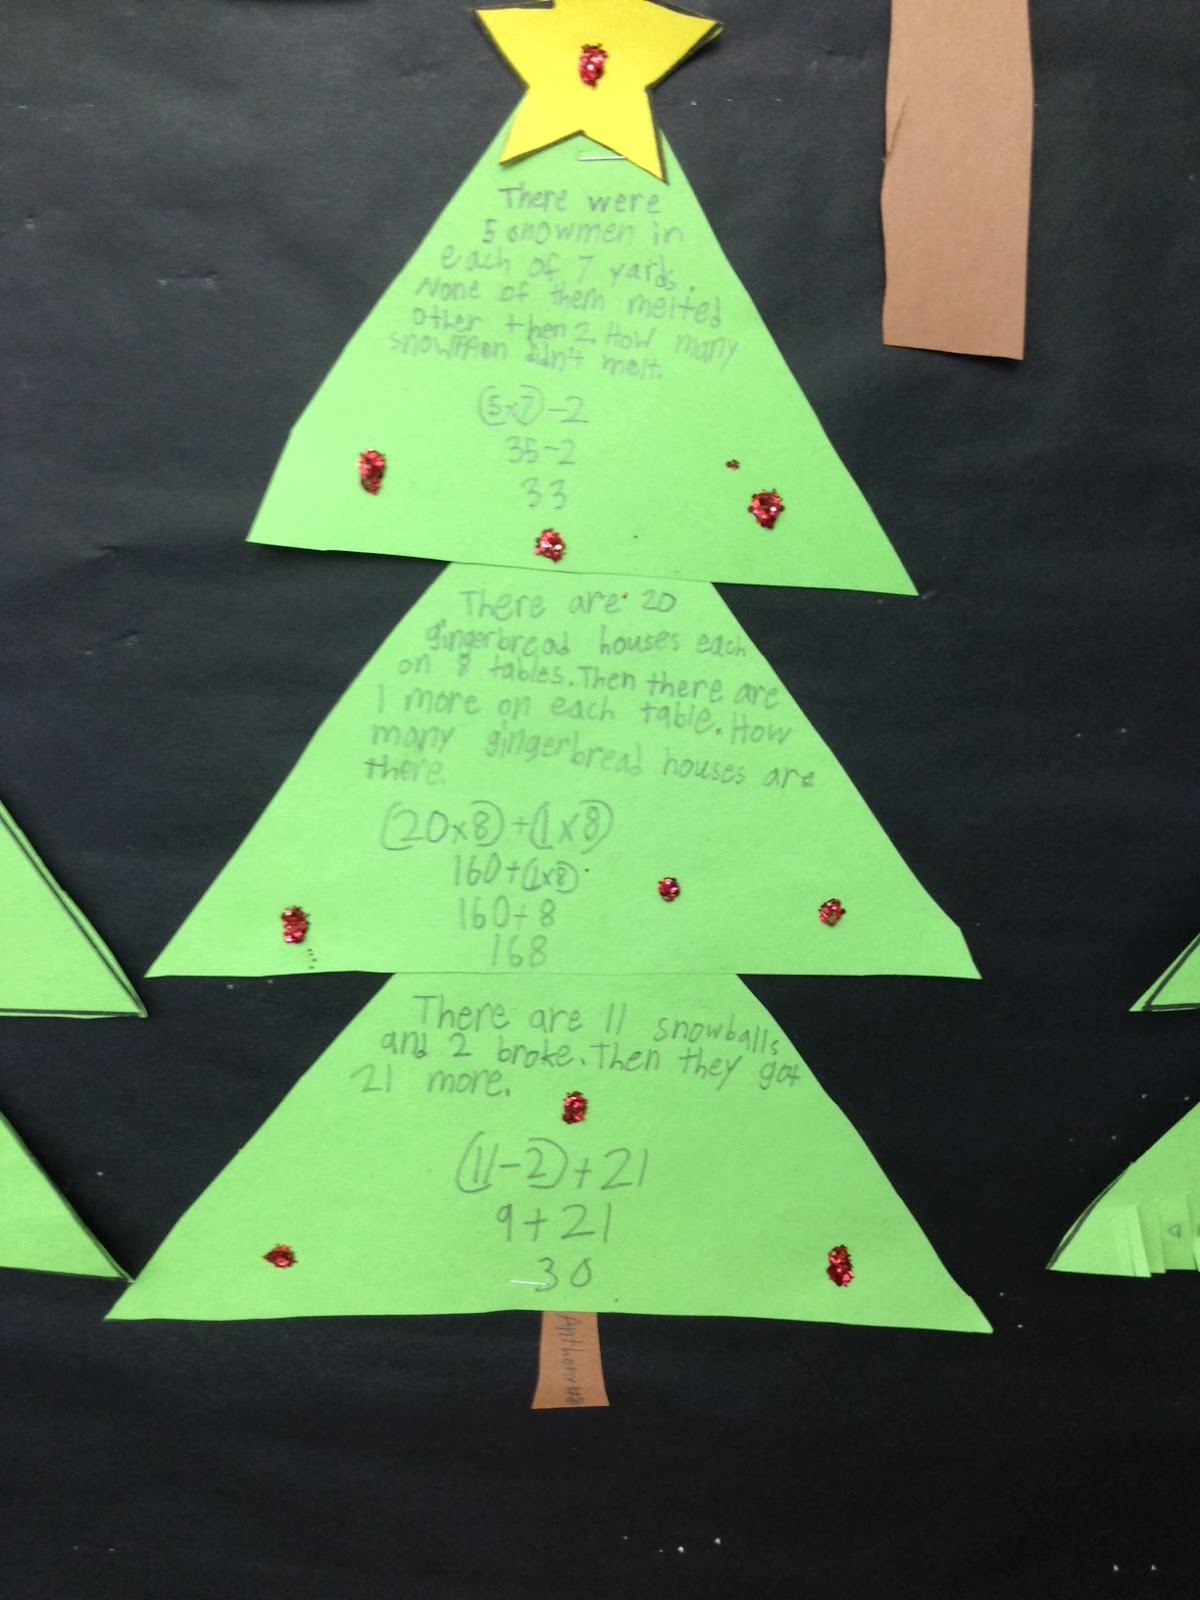 There were
5 snowmen in
each of 7 yards.
None of them melted
other then 2. How many
snowmen didn't melt.
(5x7)-2
35-2
33
There are 20
gingerbread houses each
on 8 tables. Then there are
1 more on each table. How
many gingerbread houses are
there.
(20x8)+(1x8)
160+(1x8)
160+8
168
There are 11 snowballs
and 2 broke. Then they got
21 more.
(11-2)+21
9+21
30
Anthony